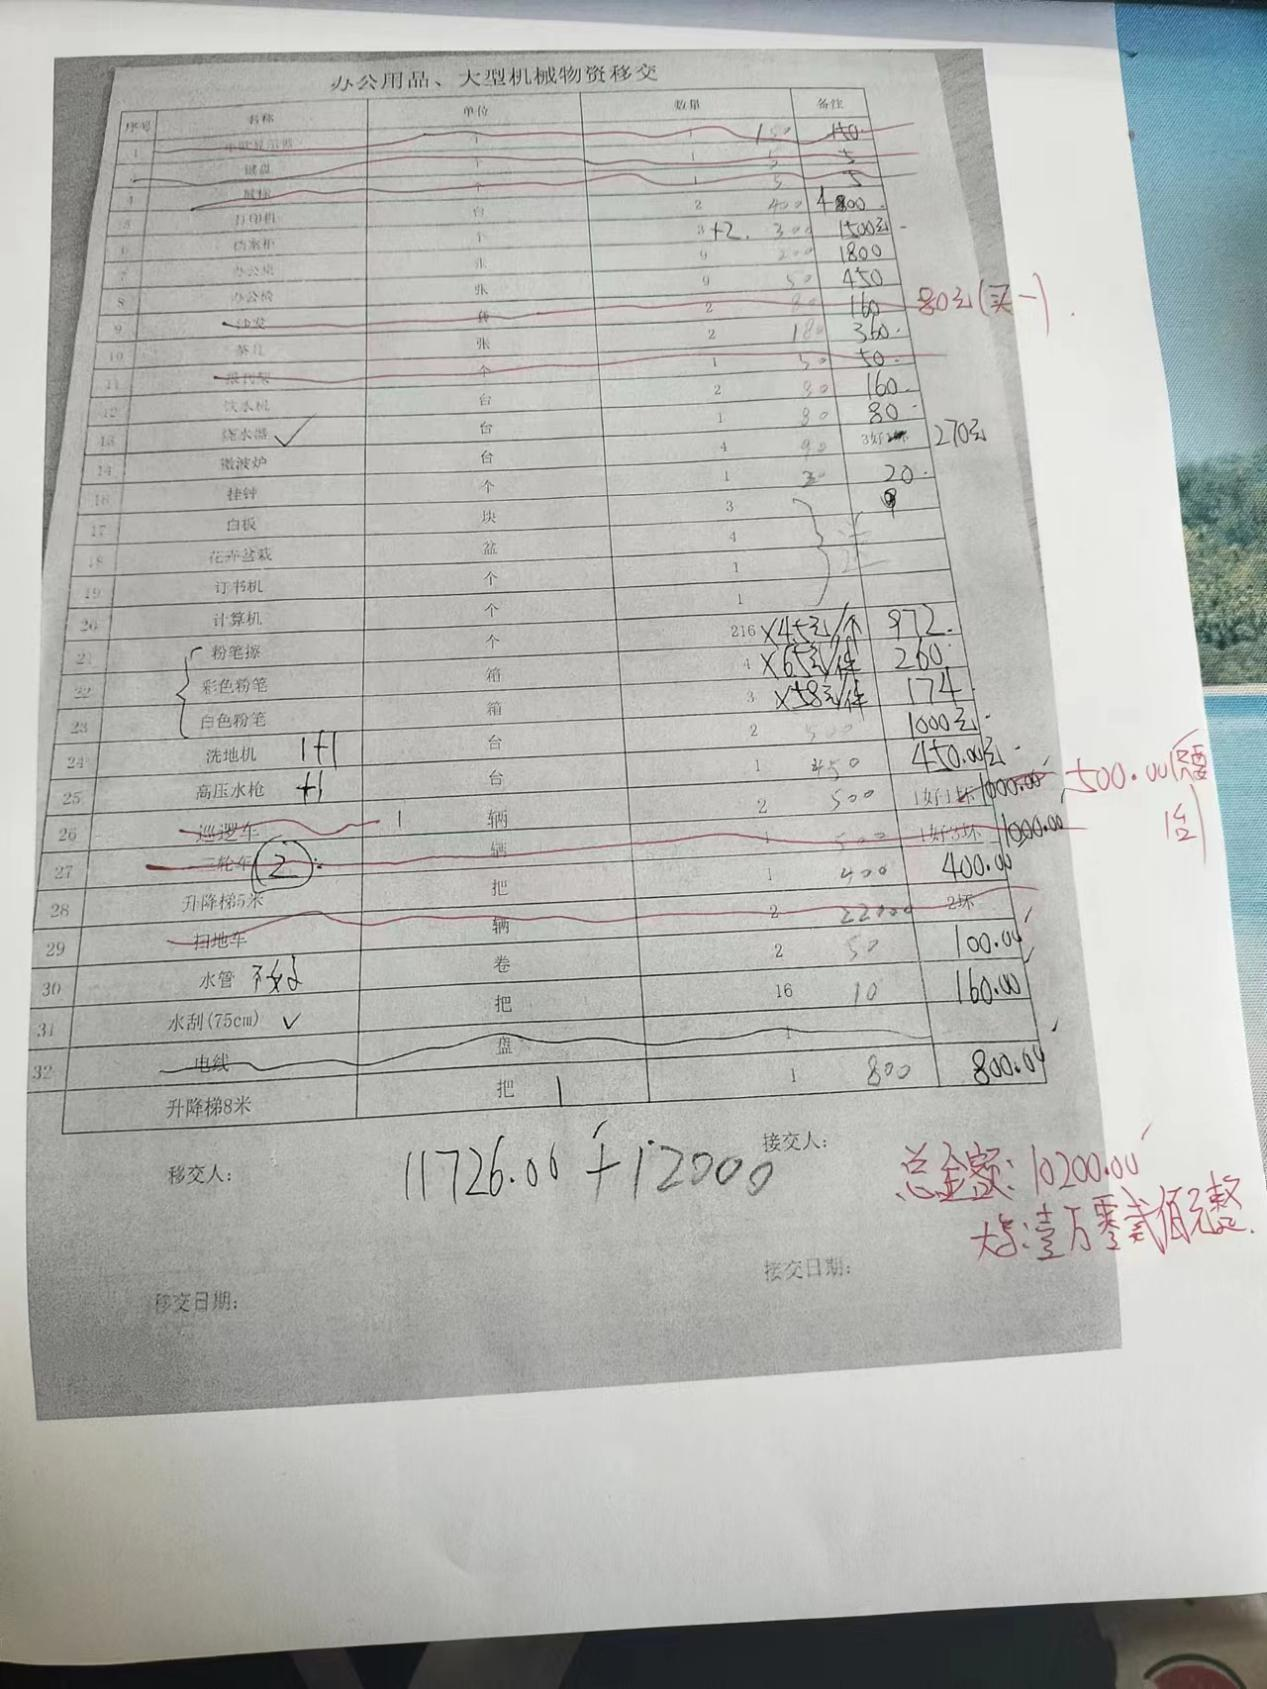 办公用品、大型机械物资移交
序号 名称 单位 数量 备注
1 个 1 150 150
键盘 个 1 5 5
4 鼠标 个 1 5 5
5 打印机 台 2 400 800
6 档案柜 个 3+2. 300 1500元
7 办公桌 张 9 200 1800
8 办公椅 张 9 50 450
9 沙发 2 80 160 80元(买一)
10 茶几 张 2 180 360
11 个 1 50 50
12 饮水机 台 2 80 160
13 烧水器 ✓ 台 1 80 80
14 微波炉 台 4 90 3好 270元
16 挂钟 个 1 20
17 白板 块 3
18 花卉盆栽 盆 4
19 订书机 个 1
20 计算机 个 1
21 粉笔擦 个 216 ×4.5元/个 972.
22 彩色粉笔 箱 4 ×65元/件 260
23 白色粉笔 箱 3 ×58元/件 174
24 洗地机 1+1 台 2 500 1000元
25 高压水枪 +1 台 1 450 450.00元
26 巡逻车 1 辆 2 500 1好1坏 1000.00 500.00(需1台)
27 三轮车 ② 辆 1 500 1好3坏 1000.00
28 升降梯5米 把 1 400 400.00
29 扫地车 辆 2 22000 2坏
30 水管 卷 2 50 100.00
31 水刮(75cm) ✓ 把 16 10 160.00
32 电线 盘 1
升降梯8米 把 1 1 800 800.00
移交人: 接交人:
11726.00 + 12000
总金额: 10200.00
大写:壹万零贰佰元整
移交日期: 接交日期: